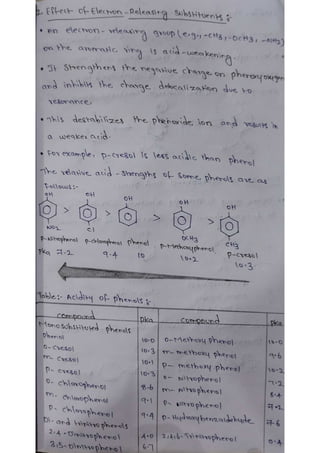 2. Effect of Electron-Releasing substituents :-
• An electron-releasing group (e.g., -CH3, -OCH3, -NH2)
on the aromatic ring is acid-weakening.
• It strengthens the negative charge on phenoxy oxygen
and inhibits the charge delocalization due to
resonance.
• This destabilizes the phenoxide ion and results in
a weaker acid.
• For example, p-cresol is less acidic than phenol
The relative acid-strengths of some phenols are as
follows:-
OH OH OH OH OH
> > > >
NO2 Cl OCH3 CH3
p-Nitrophenol p-chlorophenol phenol p-Methoxyphenol p-cresol
pka 7.2 9.4 10 10.2 10.3
Table:- Acidity of phenols :-
compound pka compound pka
Monosubstituted phenols
phenol 10.0 o-Methoxy phenol 10.0
o-cresol 10.3 m-methoxy phenol 9.6
m-cresol 10.1 p-methoxy phenol 10.2
p-cresol 10.3 o-nitrophenol 7.2
o-chlorophenol 8.6 m-nitrophenol 8.4
m-chlorophenol 9.1 p-nitrophenol 7.2
p-chlorophenol 9.4 p-Hydroxybenzaldehyde 7.6
Di-and trinitrophenols
2,4-Dinitrophenol 4.0 2,4,6-Trinitrophenol 0.4
3,5-Dinitrophenol 6.7